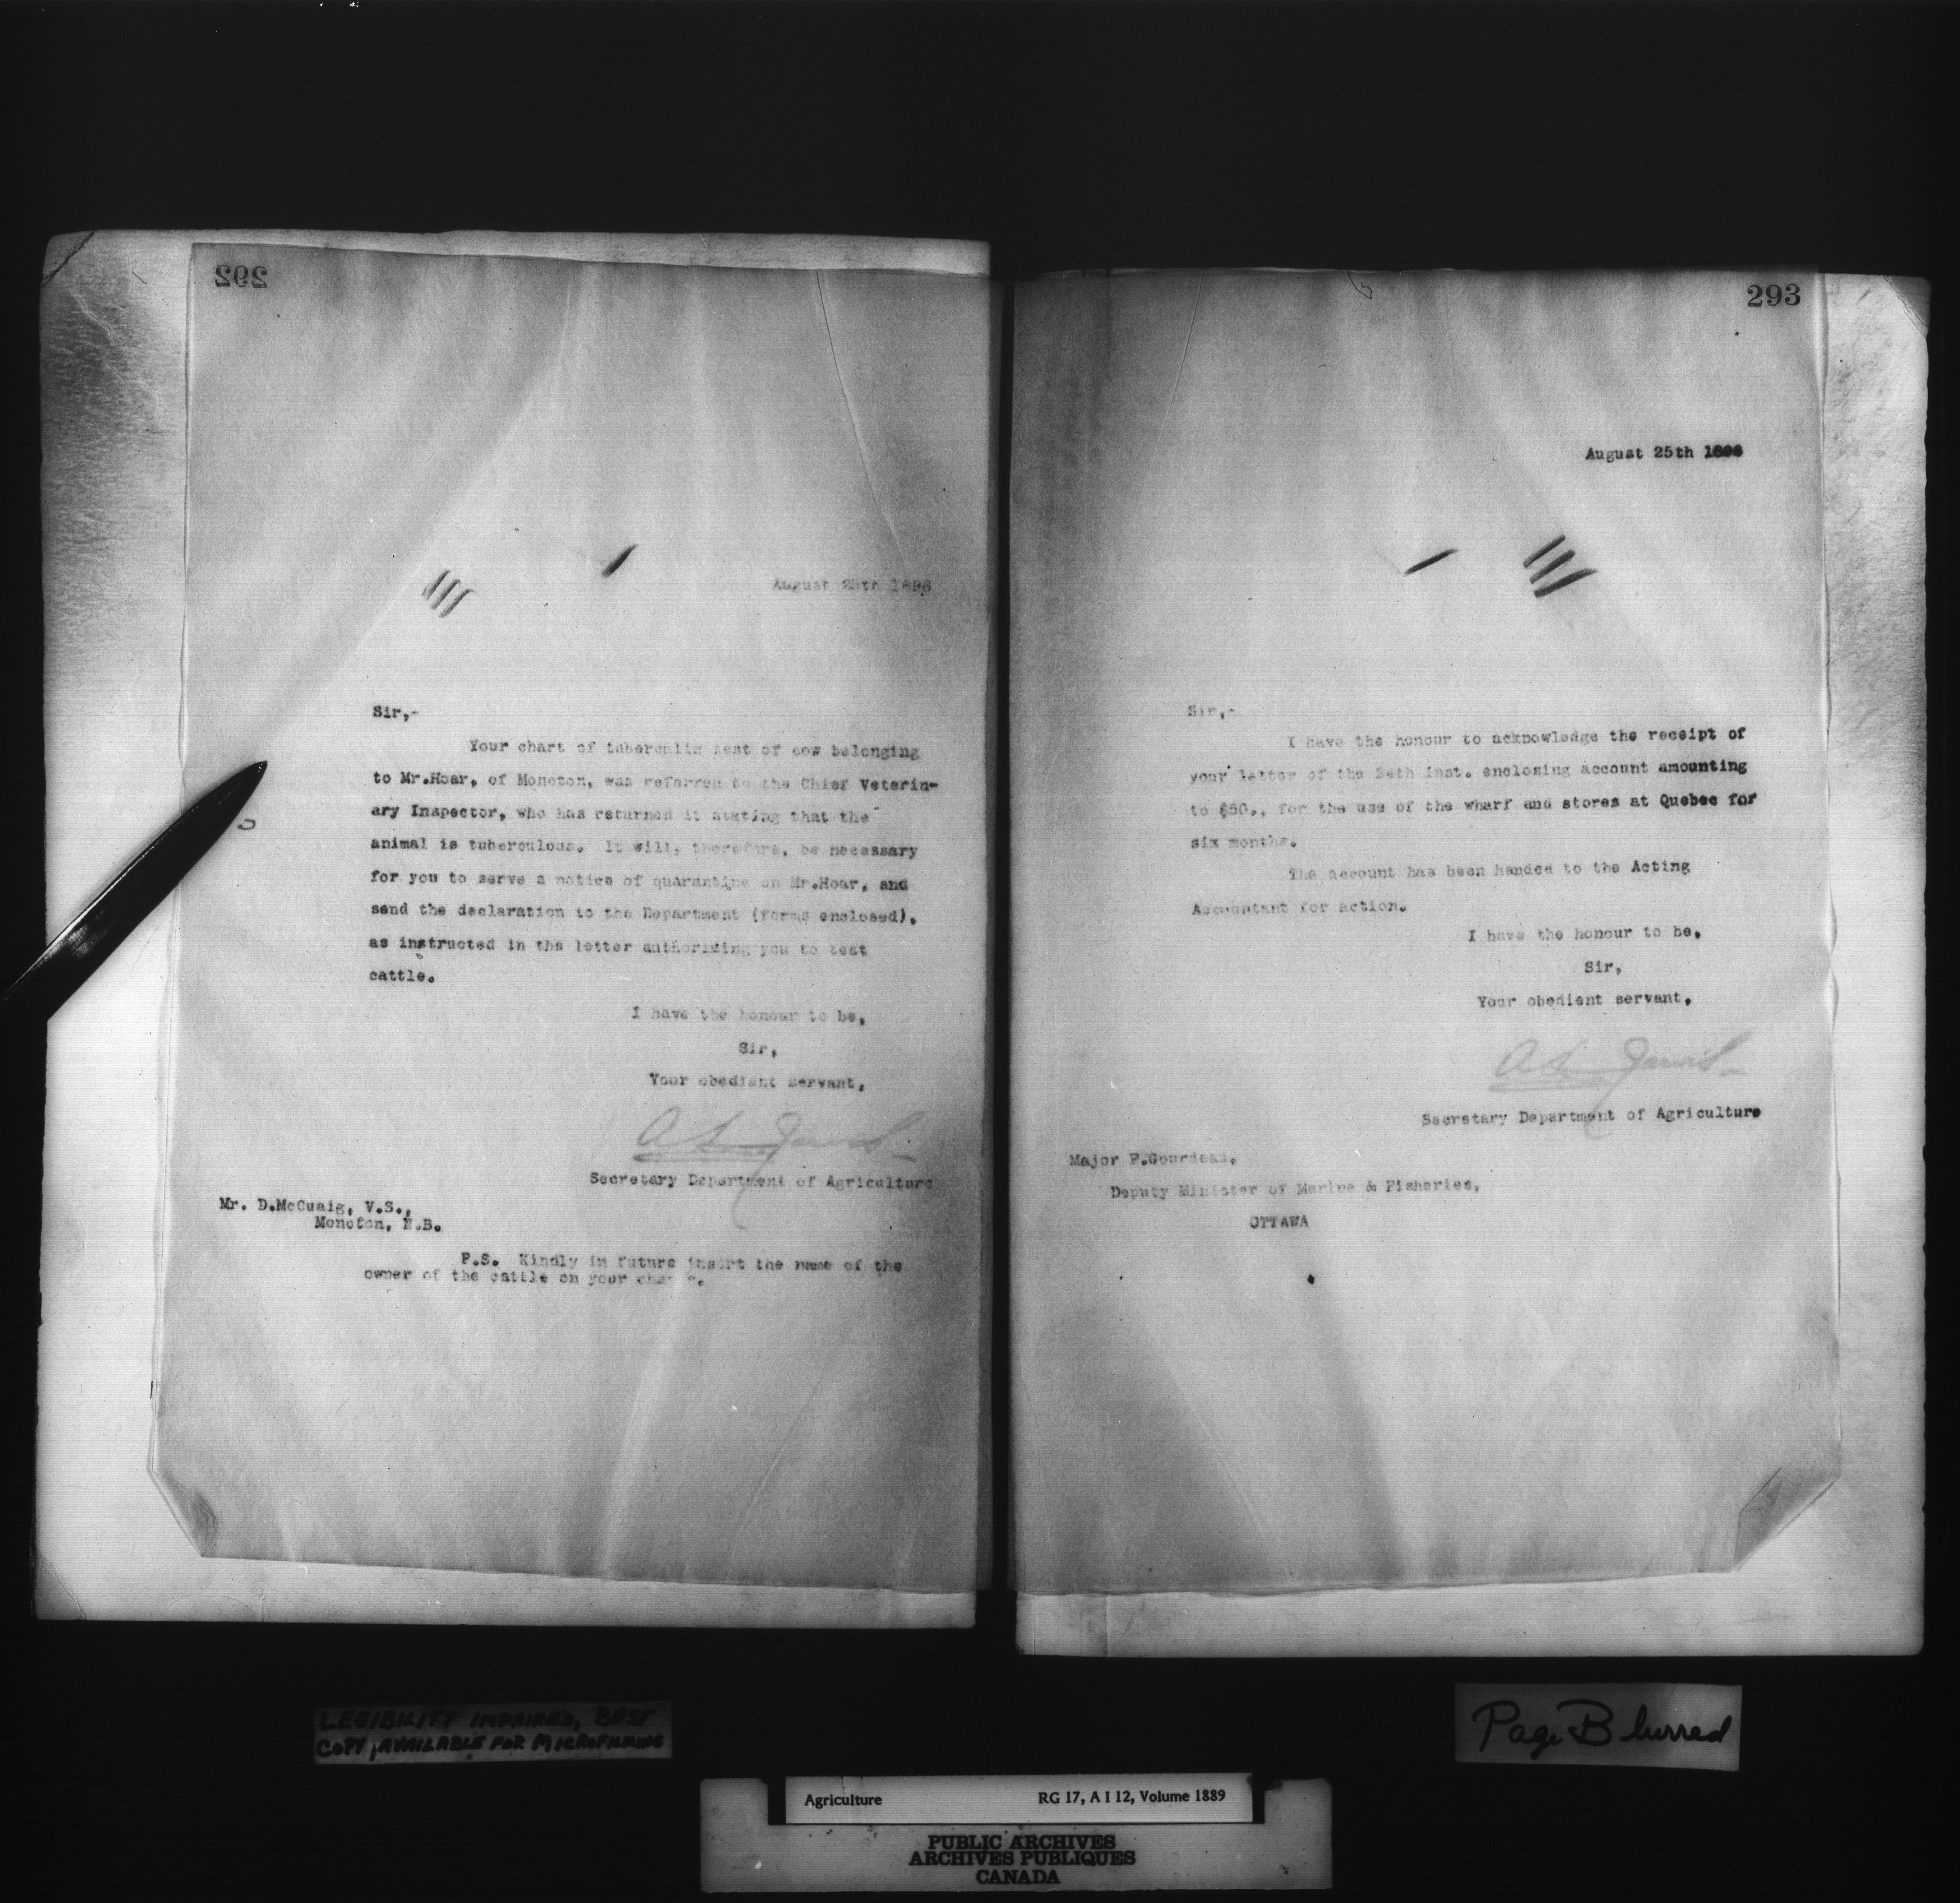 292
August 25th 1896
Sir,-
Your chart of tuberculin test of cow belonging
to Mr.Hoar, of Moncton, was referred to the Chief Veterin-
ary Inspector, who has returned it stating that the
animal is tuberculous. It will, therefore, be necessary
for you to serve a notice of quarantine on Mr.Hoar, and
send the declaration to the Department (forms enclosed),
as instructed in the letter authorizing you to test
cattle.
I have the honour to be,
Sir,
Your obedient servant,
A L Jarvis
Secretary Department of Agriculture
Mr. D.McCuaig, V.S.,
Moncton, N.B.
P.S. Kindly in future insert the name of the
owner of the cattle on your
293
August 25th
Sir,-
I have the honour to acknowledge the receipt of
your letter of the 24th inst. enclosing account amounting
to $50., for the use of the wharf and stores at Quebec for
six months.
The account has been handed to the Acting
Accountant for action.
I have the honour to be,
Sir,
Your obedient servant,
A L Jarvis
Secretary Department of Agriculture
Major F.Gourdeau,
Deputy Minister of Marine & Fisheries,
OTTAWA
LEGIBILITY IMPAIRED, BEST
COPY AVAILABLE FOR MICROFILMING
Page Blurred
Agriculture RG 17, A I 12, Volume 1889
PUBLIC ARCHIVES
ARCHIVES PUBLIQUES
CANADA